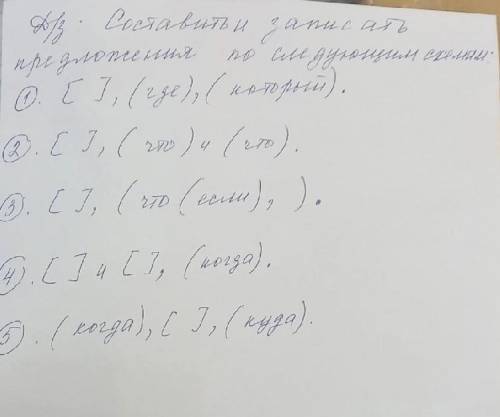 Д/з. Составить и записать
предложения по следующим схемам.
1. [ ], (где), (который).
2. [ ], (что) и (что).
3. [ ], (что (если), ).
4. [ ] и [ ], (когда).
5. (когда), [ ], (куда).